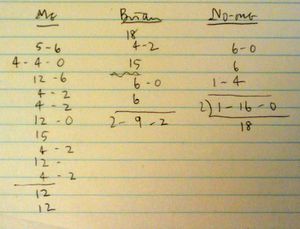 Me
5-6
4-4-0
12-6
4-2
4-2
12-0
15
4-2
12-
4-2
12
12
Brian
18
4-2
15
6-0
6
2-9-2
No-one
6-0
6
1-4
2) 1-16-0
18